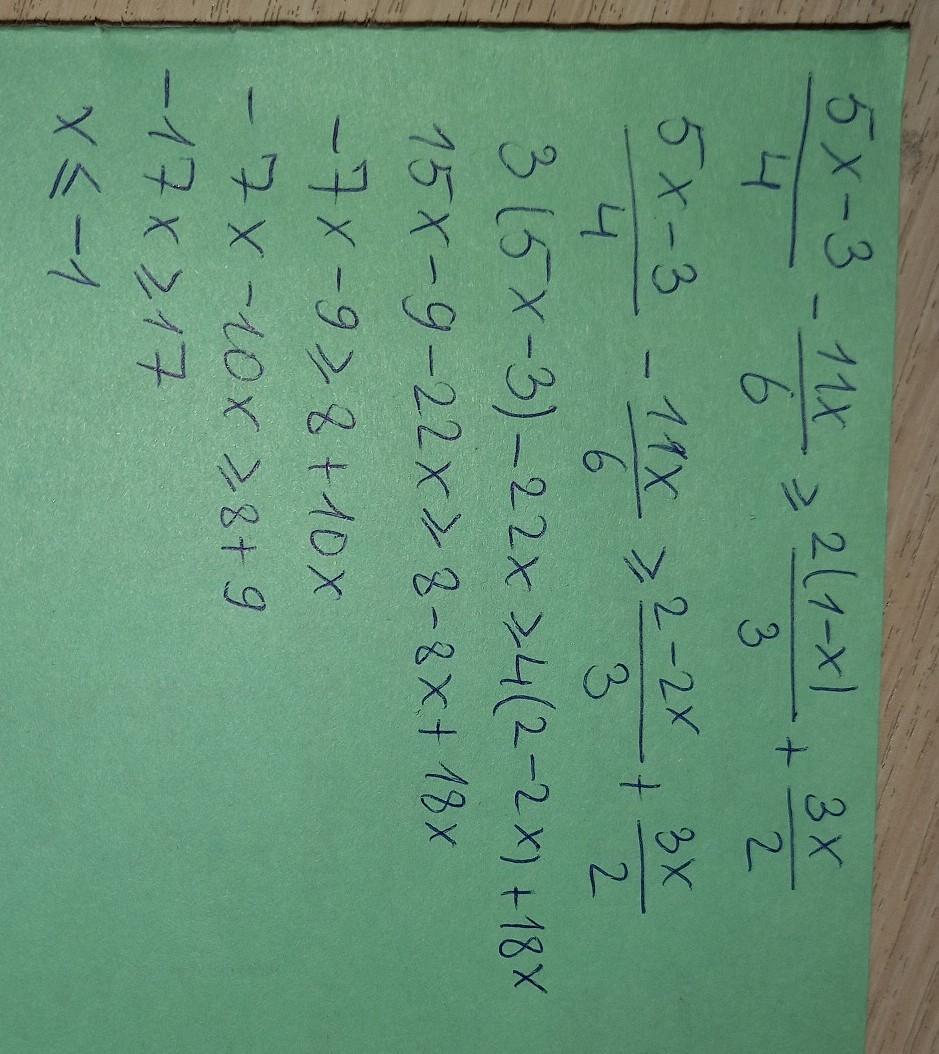 (5x-3)/4 - 11x/6 ≥ 2(1-x)/3 + 3x/2
(5x-3)/4 - 11x/6 ≥ (2-2x)/3 + 3x/2
3(5x-3)-22x ≥ 4(2-2x)+18x
15x-9-22x ≥ 8-8x+18x
-7x-9 ≥ 8+10x
-7x-10x ≥ 8+9
-17x ≥ 17
x ≤ -1